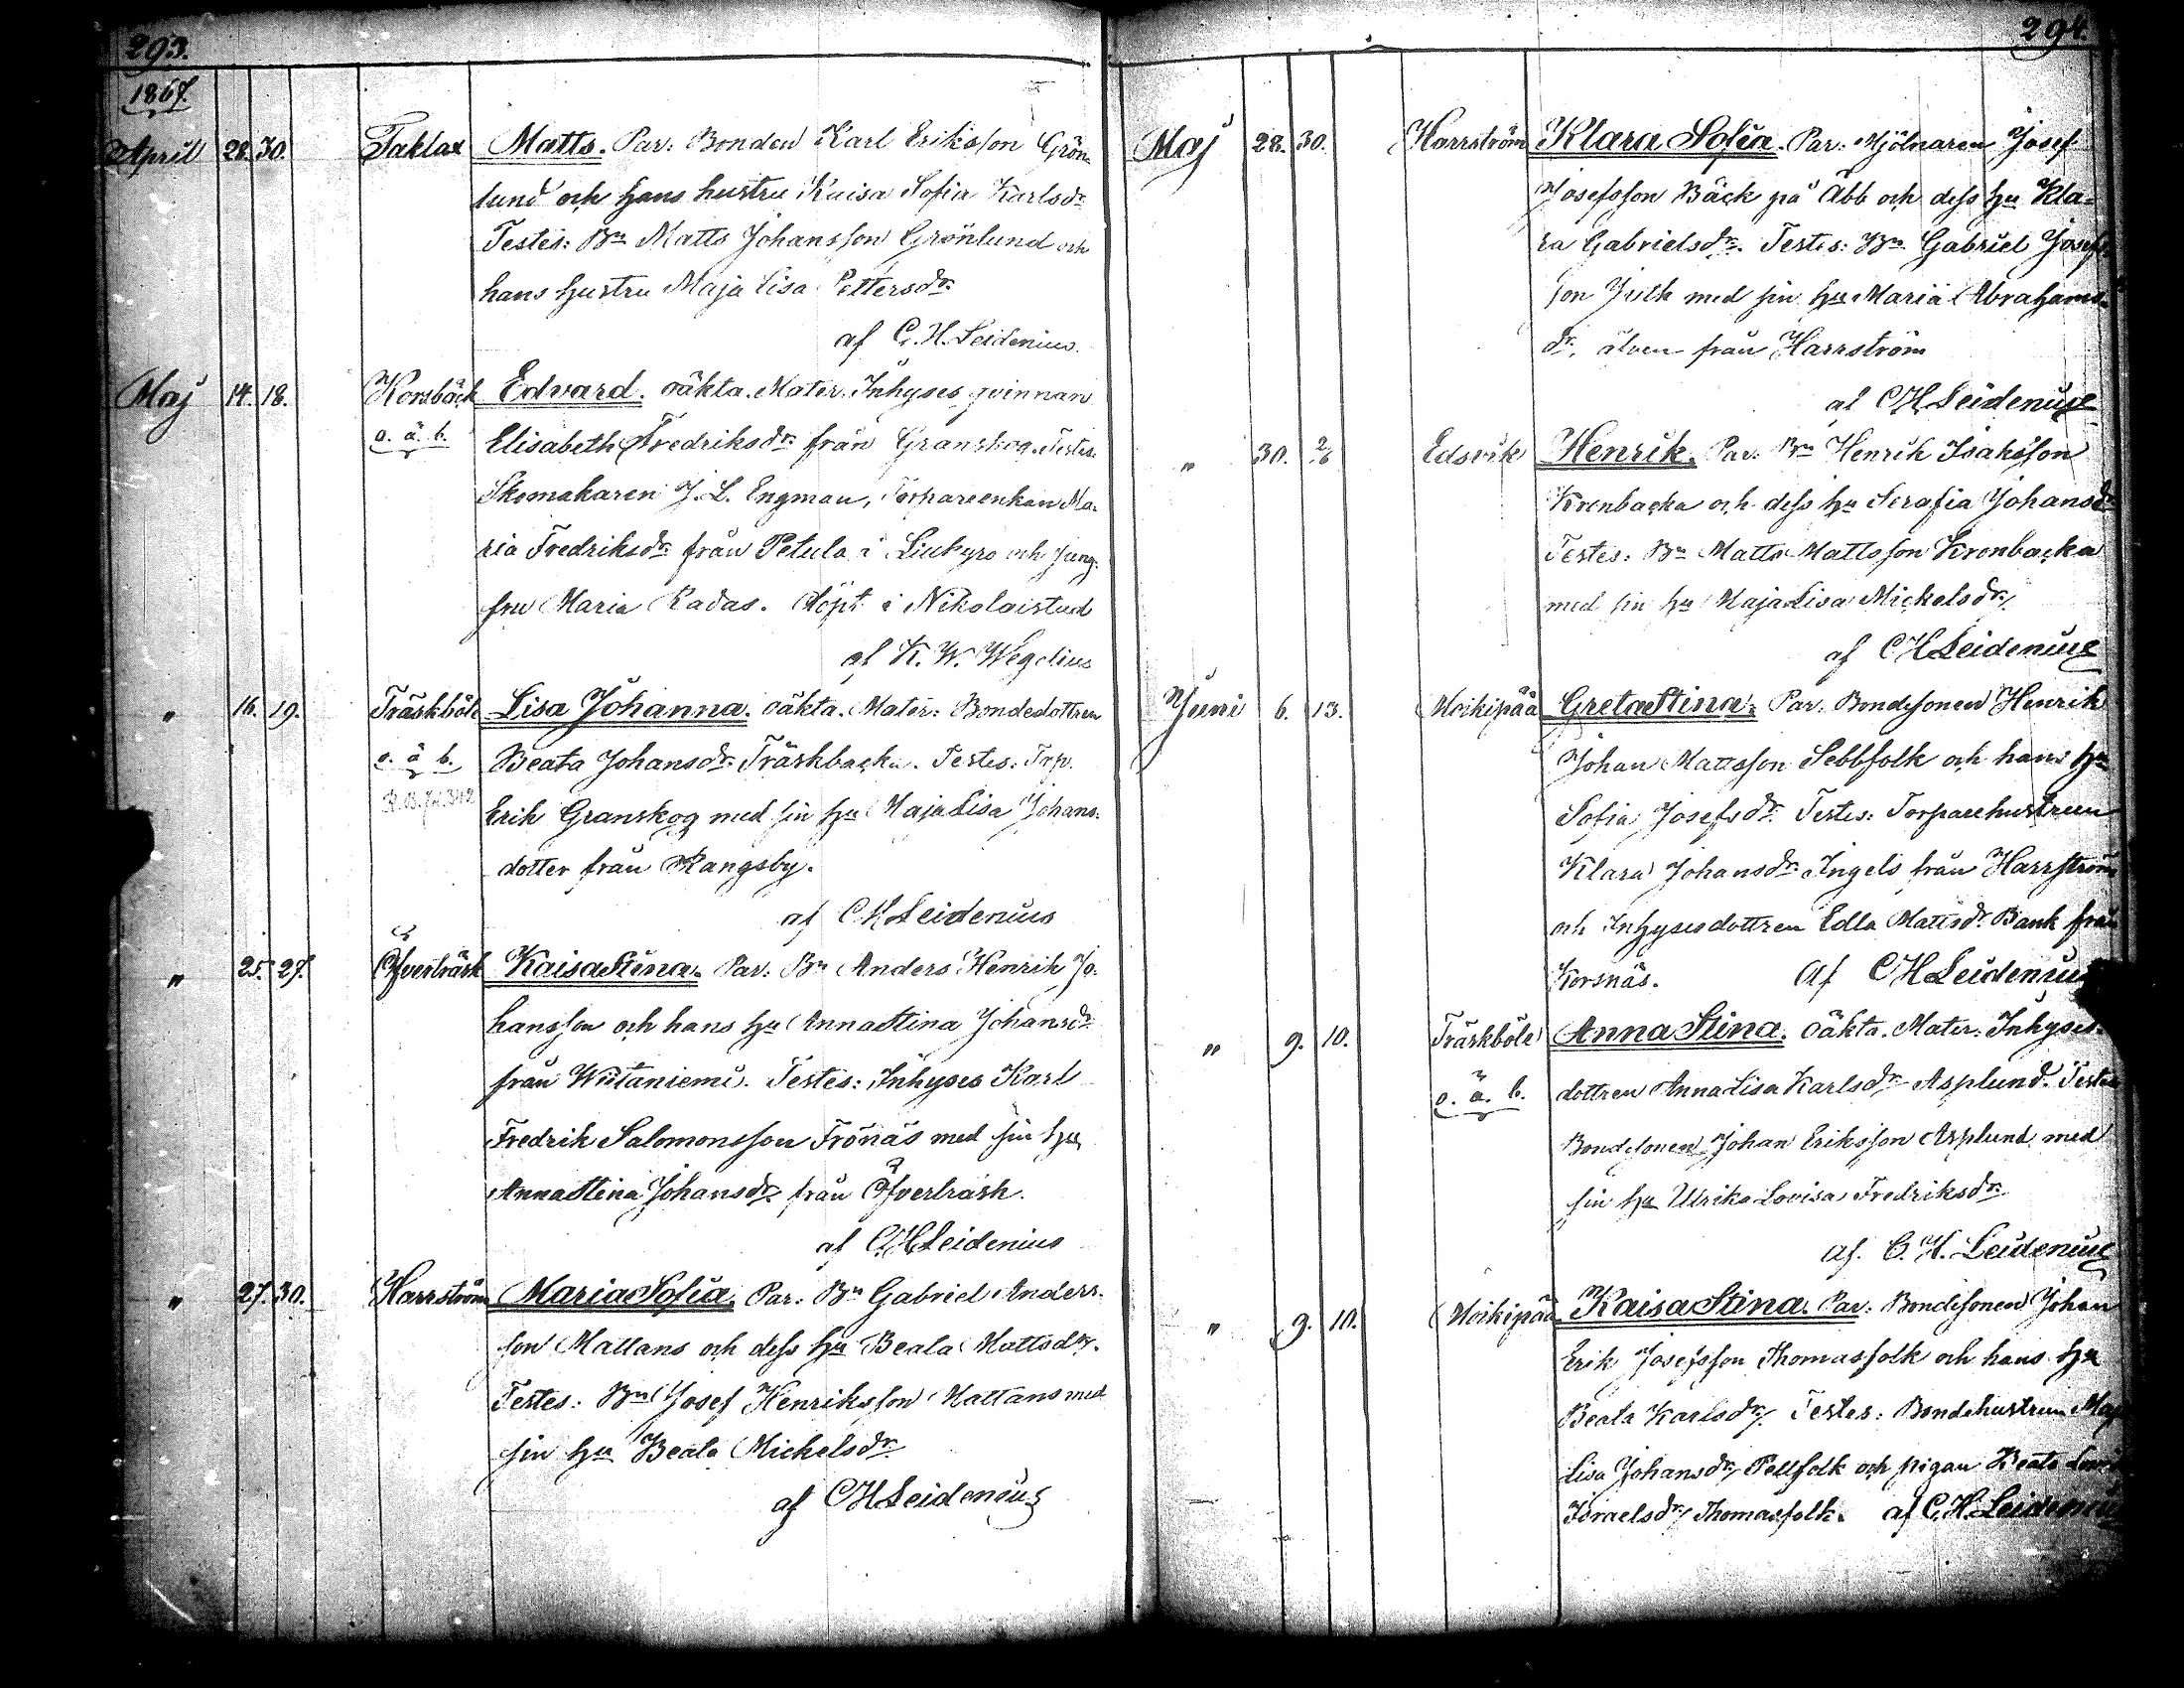 293.
1867.
April 28. 30. Taklax Matts. Par: Bonden Karl Eriksson Grön-
lund och hans hustru Kaisa Sofia Karlsdr
Testes: Bn Matts Johansson Grönlund och
hans hustru Maja Lisa Pettersdr.
af C. H. Leidenius.
Maj 14. 18. Korsbäck Edvard. oäkta. Mater. Inhyses qvinnan
o. ä. b. Elisabeth Fredriksdr. från Granskog. Testes:
Skomakaren J. L. Engman, Torpareenkan Ma-
ria Fredriksdr. från Petula i Liukyro och Jung-
fru Maria Radas. döpt i Nikolaistad
af K. W. Wegelius
" 16. 19. Träskböle Lisa Johanna. oäkta. Mater: Bondedottren
o. ä. b. Beata Johansdr. Träskbacka. Testes: Trp.
Erik Granskog med sin hu Maja Lisa Johans-
dotter från Rangsby.
af C H Leidenius
" 25. 27. Öfverträsk Kaisa Stina. Par: Bn Anders Henrik Jo-
hansson och hans hu Anna Stina Johansdr
från Wiitaniemi. Testes: Inhyses Karl
Fredrik Salomonsson Frönäs med sin hu
Anna Stina Johansdr. från Öfverträsk.
af C. H Leidenius
" 27. 30. Harrström Maria Sofia. Par: Bn Gabriel Anders-
son Mattans och dess hu Beata Mattsdr.
Testes: Bn Josef Henriksson Mattans med
sin hu Beata Mickelsdr.
af C H Leidenius
294.
Maj 28. 30. Harrström Klara Sofia. Par: Mjölnaren Josef
Josefsson Bäck på Åbb och dess hu Kla-
ra Gabrielsdr. Testes: Bn Gabriel Josefs-
son Juth med sin hu Maria Abrahams-
dr. älven från Harrström
af C H Leidenius
" 30. 2/6 Edsvik Henrik. Par: Bn Henrik Isaksson
Kronbacka och dess hu Serafia Johansdr
Testes: Bn Matts Mattsson Kronbacka
med sin hu Maja Lisa Mickelsdr.
af C H Leidenius
Juni 6. 13. Moikipää Greta Stina. Par: Bondesonen Henrik
Johan Mattsson Sebbfolk och hans hu
Sofia Josefsdr. Testes: Torparehustrun
Klara Johansdr. Ingels från Harrström
och Inhysesdottren Edla Mattsdr. Bank från
Korsnäs. af C H Leidenius
" 9. 10. Träskböle Anna Stina. oäkta. Mater: Inhyses-
o. ä. b. dottren Anna Lisa Karlsdr Asplund. Testes
Bondesonen Johan Eriksson Asplund med
sin hu Ulrika Lovisa Fredriksdr.
af. C. H. Leidenius
" 9. 10. Moikipää Kaisa Stina. Par: Bondesonen Johan
Erik Josefsson Thomasfolk och hans hu
Beata Karlsdr. Testes: Bondehustrun Maja
Lisa Johansdr. Pellfolk och pigan Beata
Israelsdr. Thomasfolk. af C. H. Leidenius